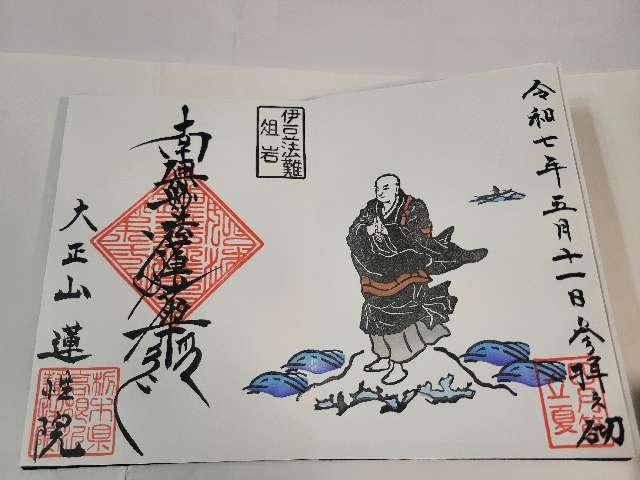 令和七年五月十一日参拝之砌
伊豆法難
俎岩
南無妙法蓮華経
大正山 蓮性院
栃木県
立夏